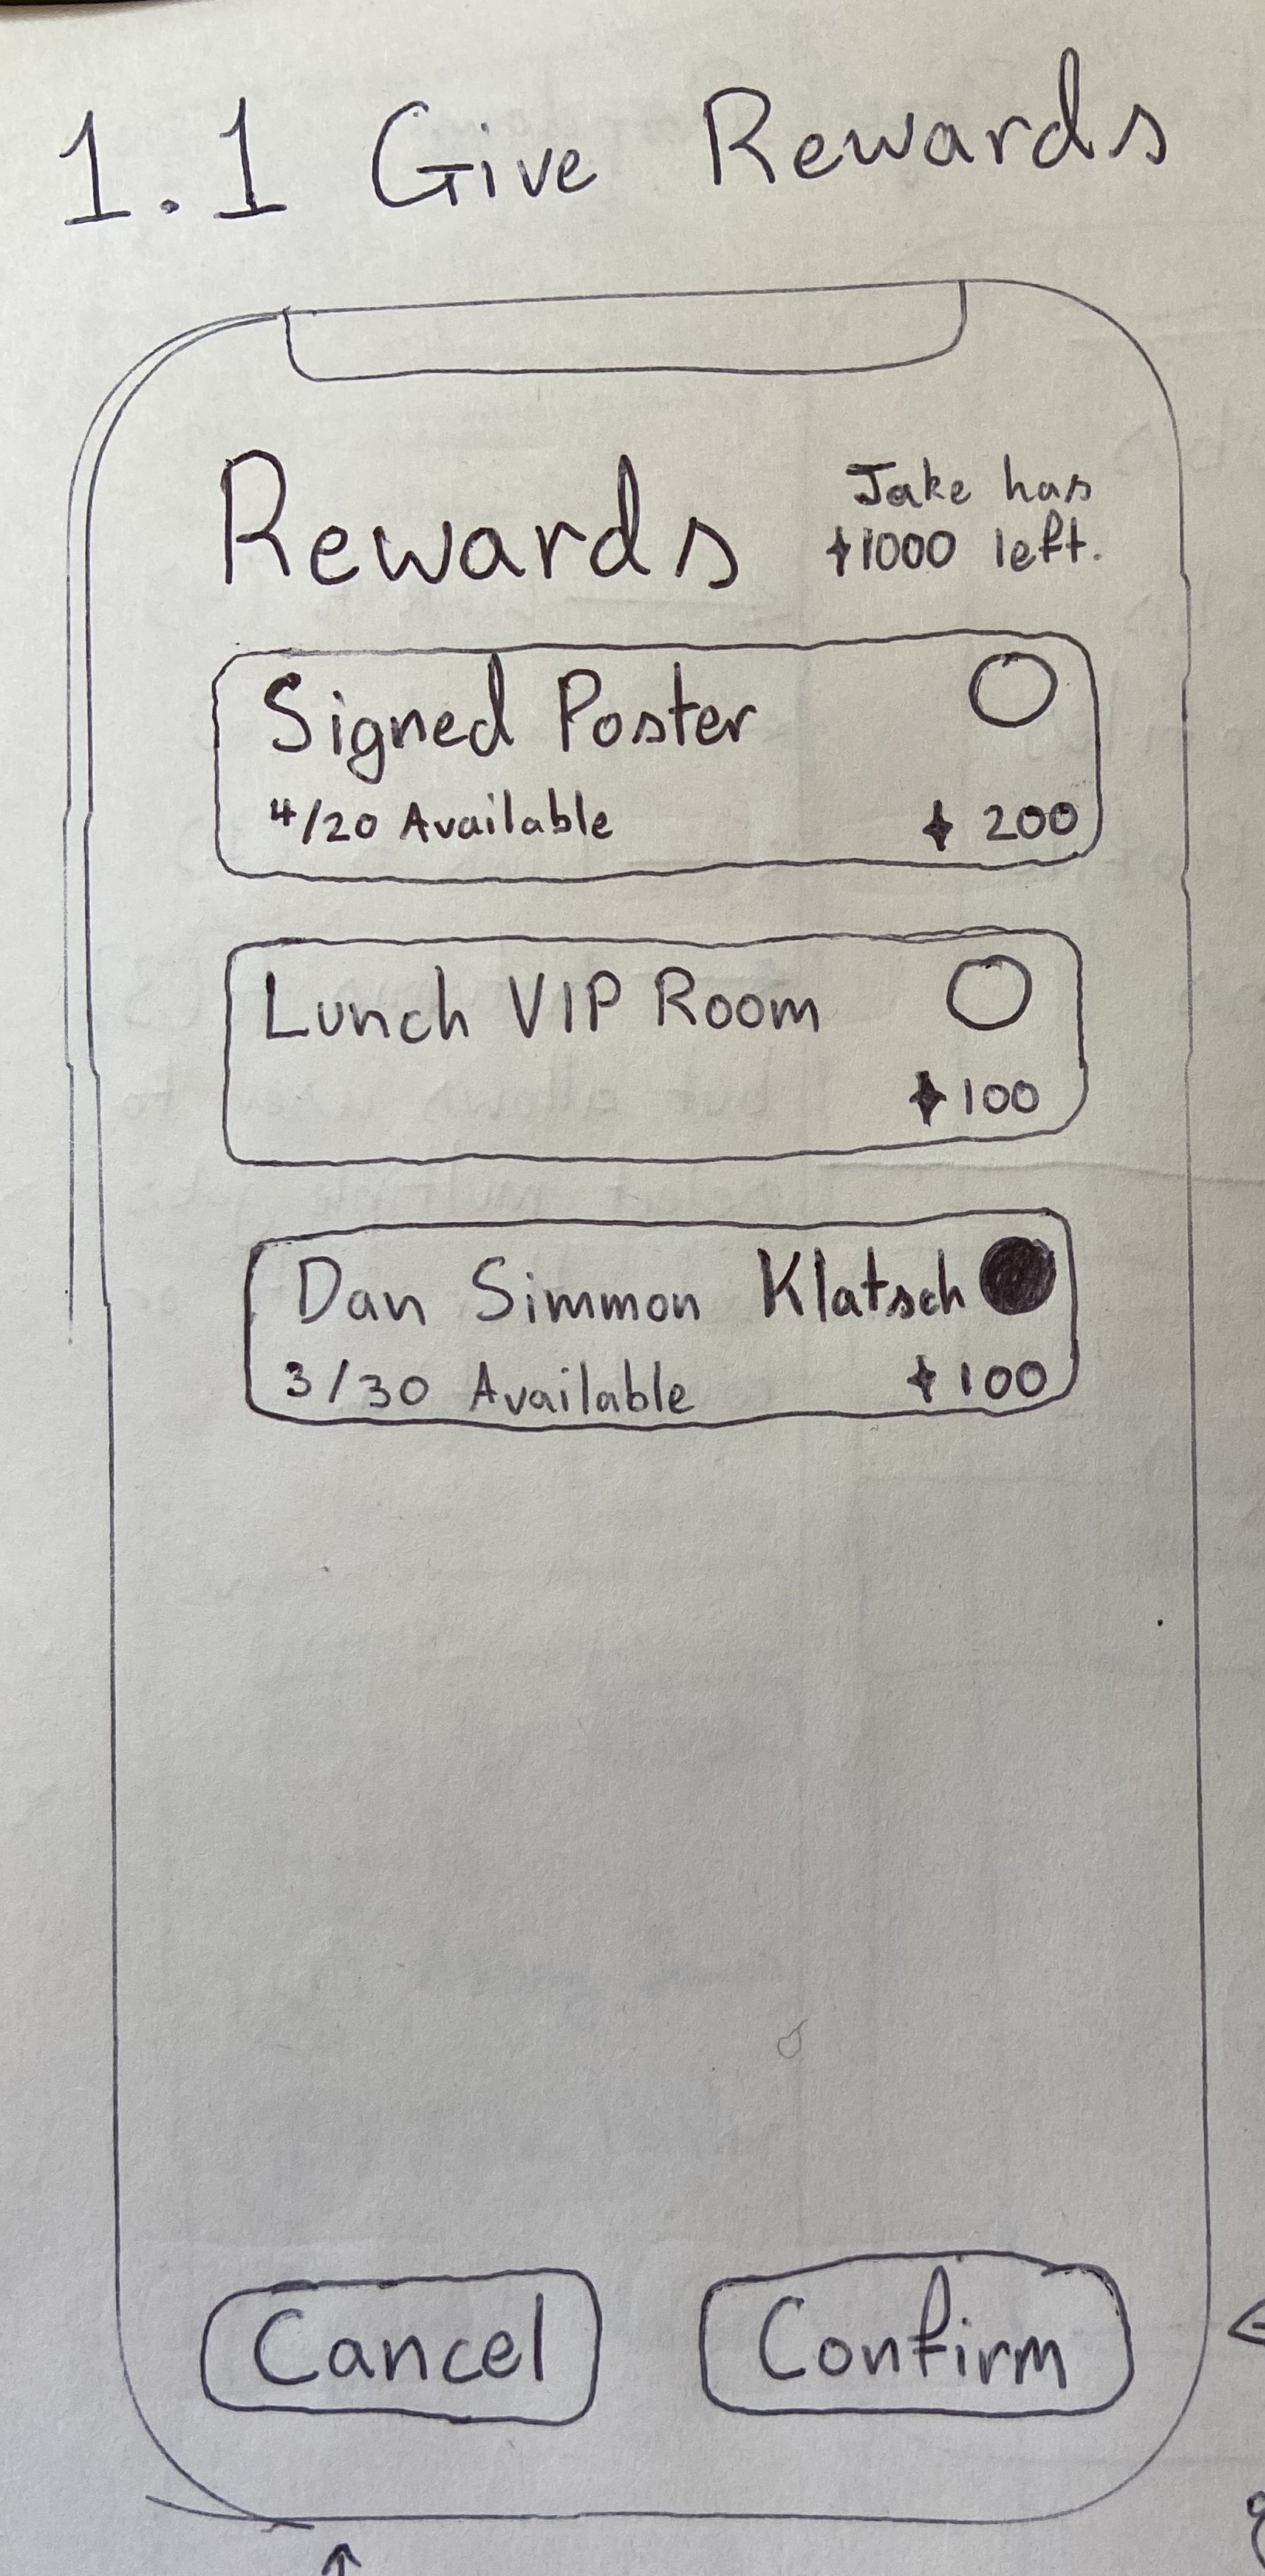 1.1 Give Rewards
Rewards
Jake has
✦1000 left.
Signed Poster
4/20 Available
✦ 200
Lunch VIP Room
✦100
Dan Simmon Klatsch
3/30 Available
✦100
Cancel
Confirm